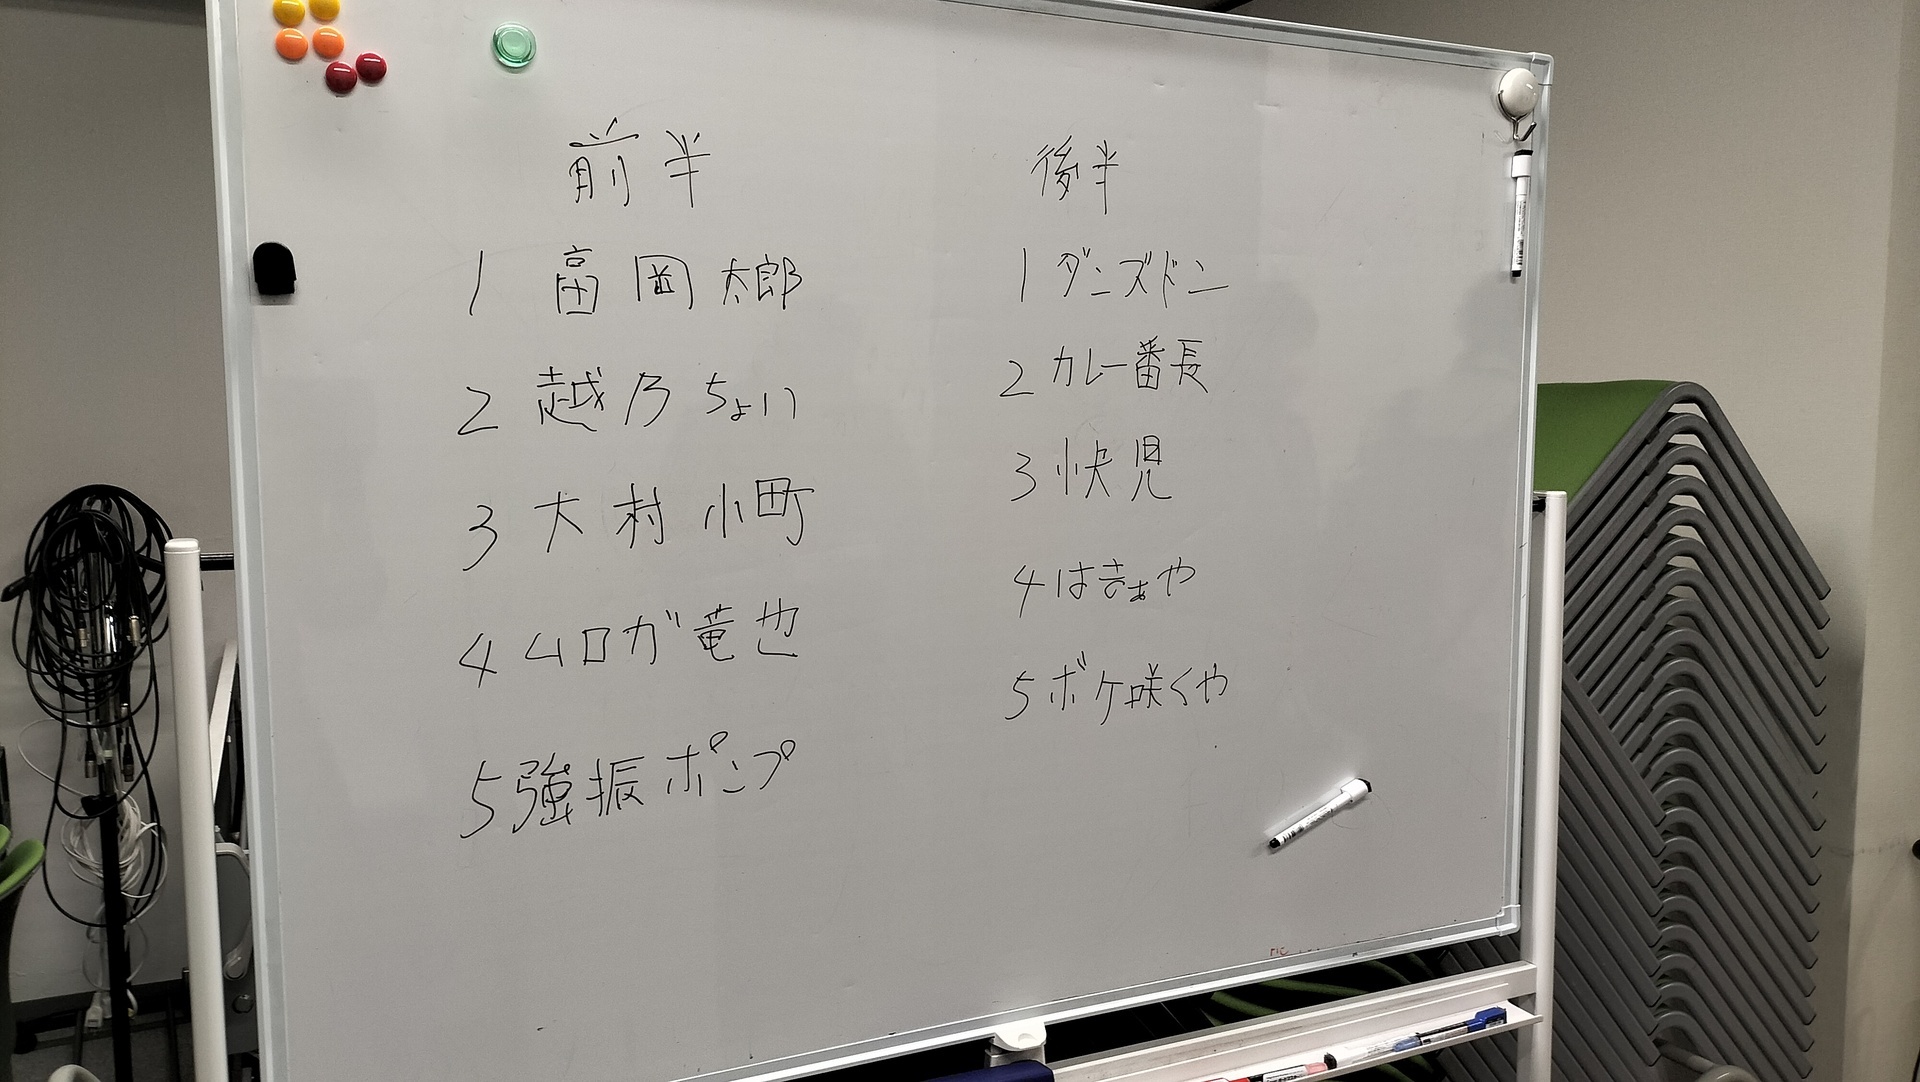 前半
1 富岡太郎
2 越乃ちょい
3 大村小町
4 ムロガ竜也
5 強振ポンプ
後半
1 ダンズドン
2 カレー番長
3 快児
4 はきぁや
5 ボケ咲くや